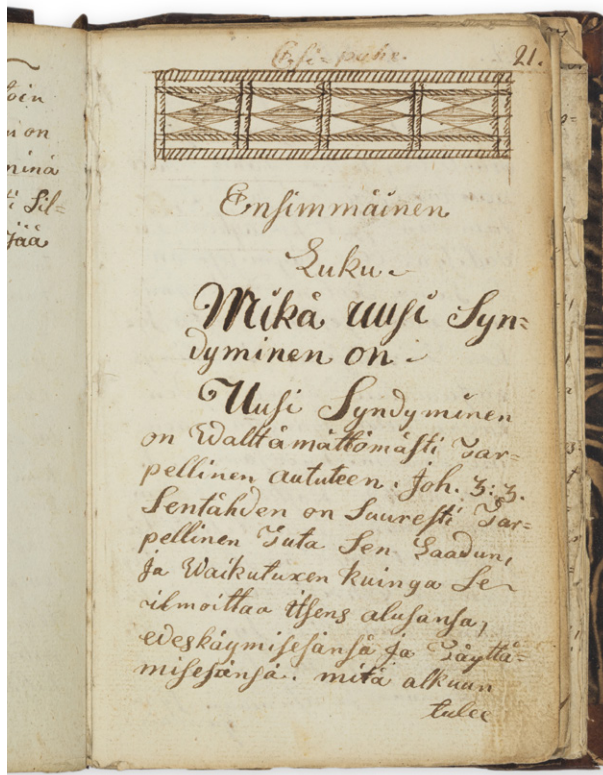 oin
on
minä
Sil=
jää
Esi=puhe.
21.
Ensimmäinen
Luku.
Mikä uusi Syn=
dyminen on.
Uusi Syndyminen
on Walttämättömästi Tar=
pellinen aututeen. Joh. 3: 3.
Sentähden on Suuresti Tar=
pellinen Tuta Sen Laadun,
Ja Waikutuxen kuinga Se
ilmoittaa itsens alusansa,
edeskäymisesänsä ja Täyttä=
misesänsä. mitä alkuun
tulee